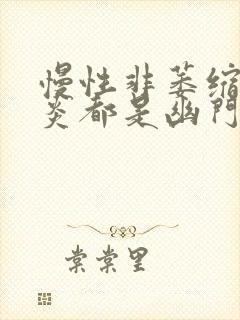 慢性非萎缩
炎都是幽门
棠棠里